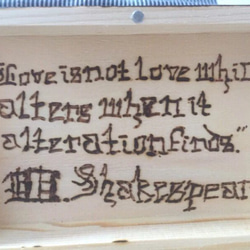 Love is not love whi
alters when it
alteration finds."
W. Shakespear